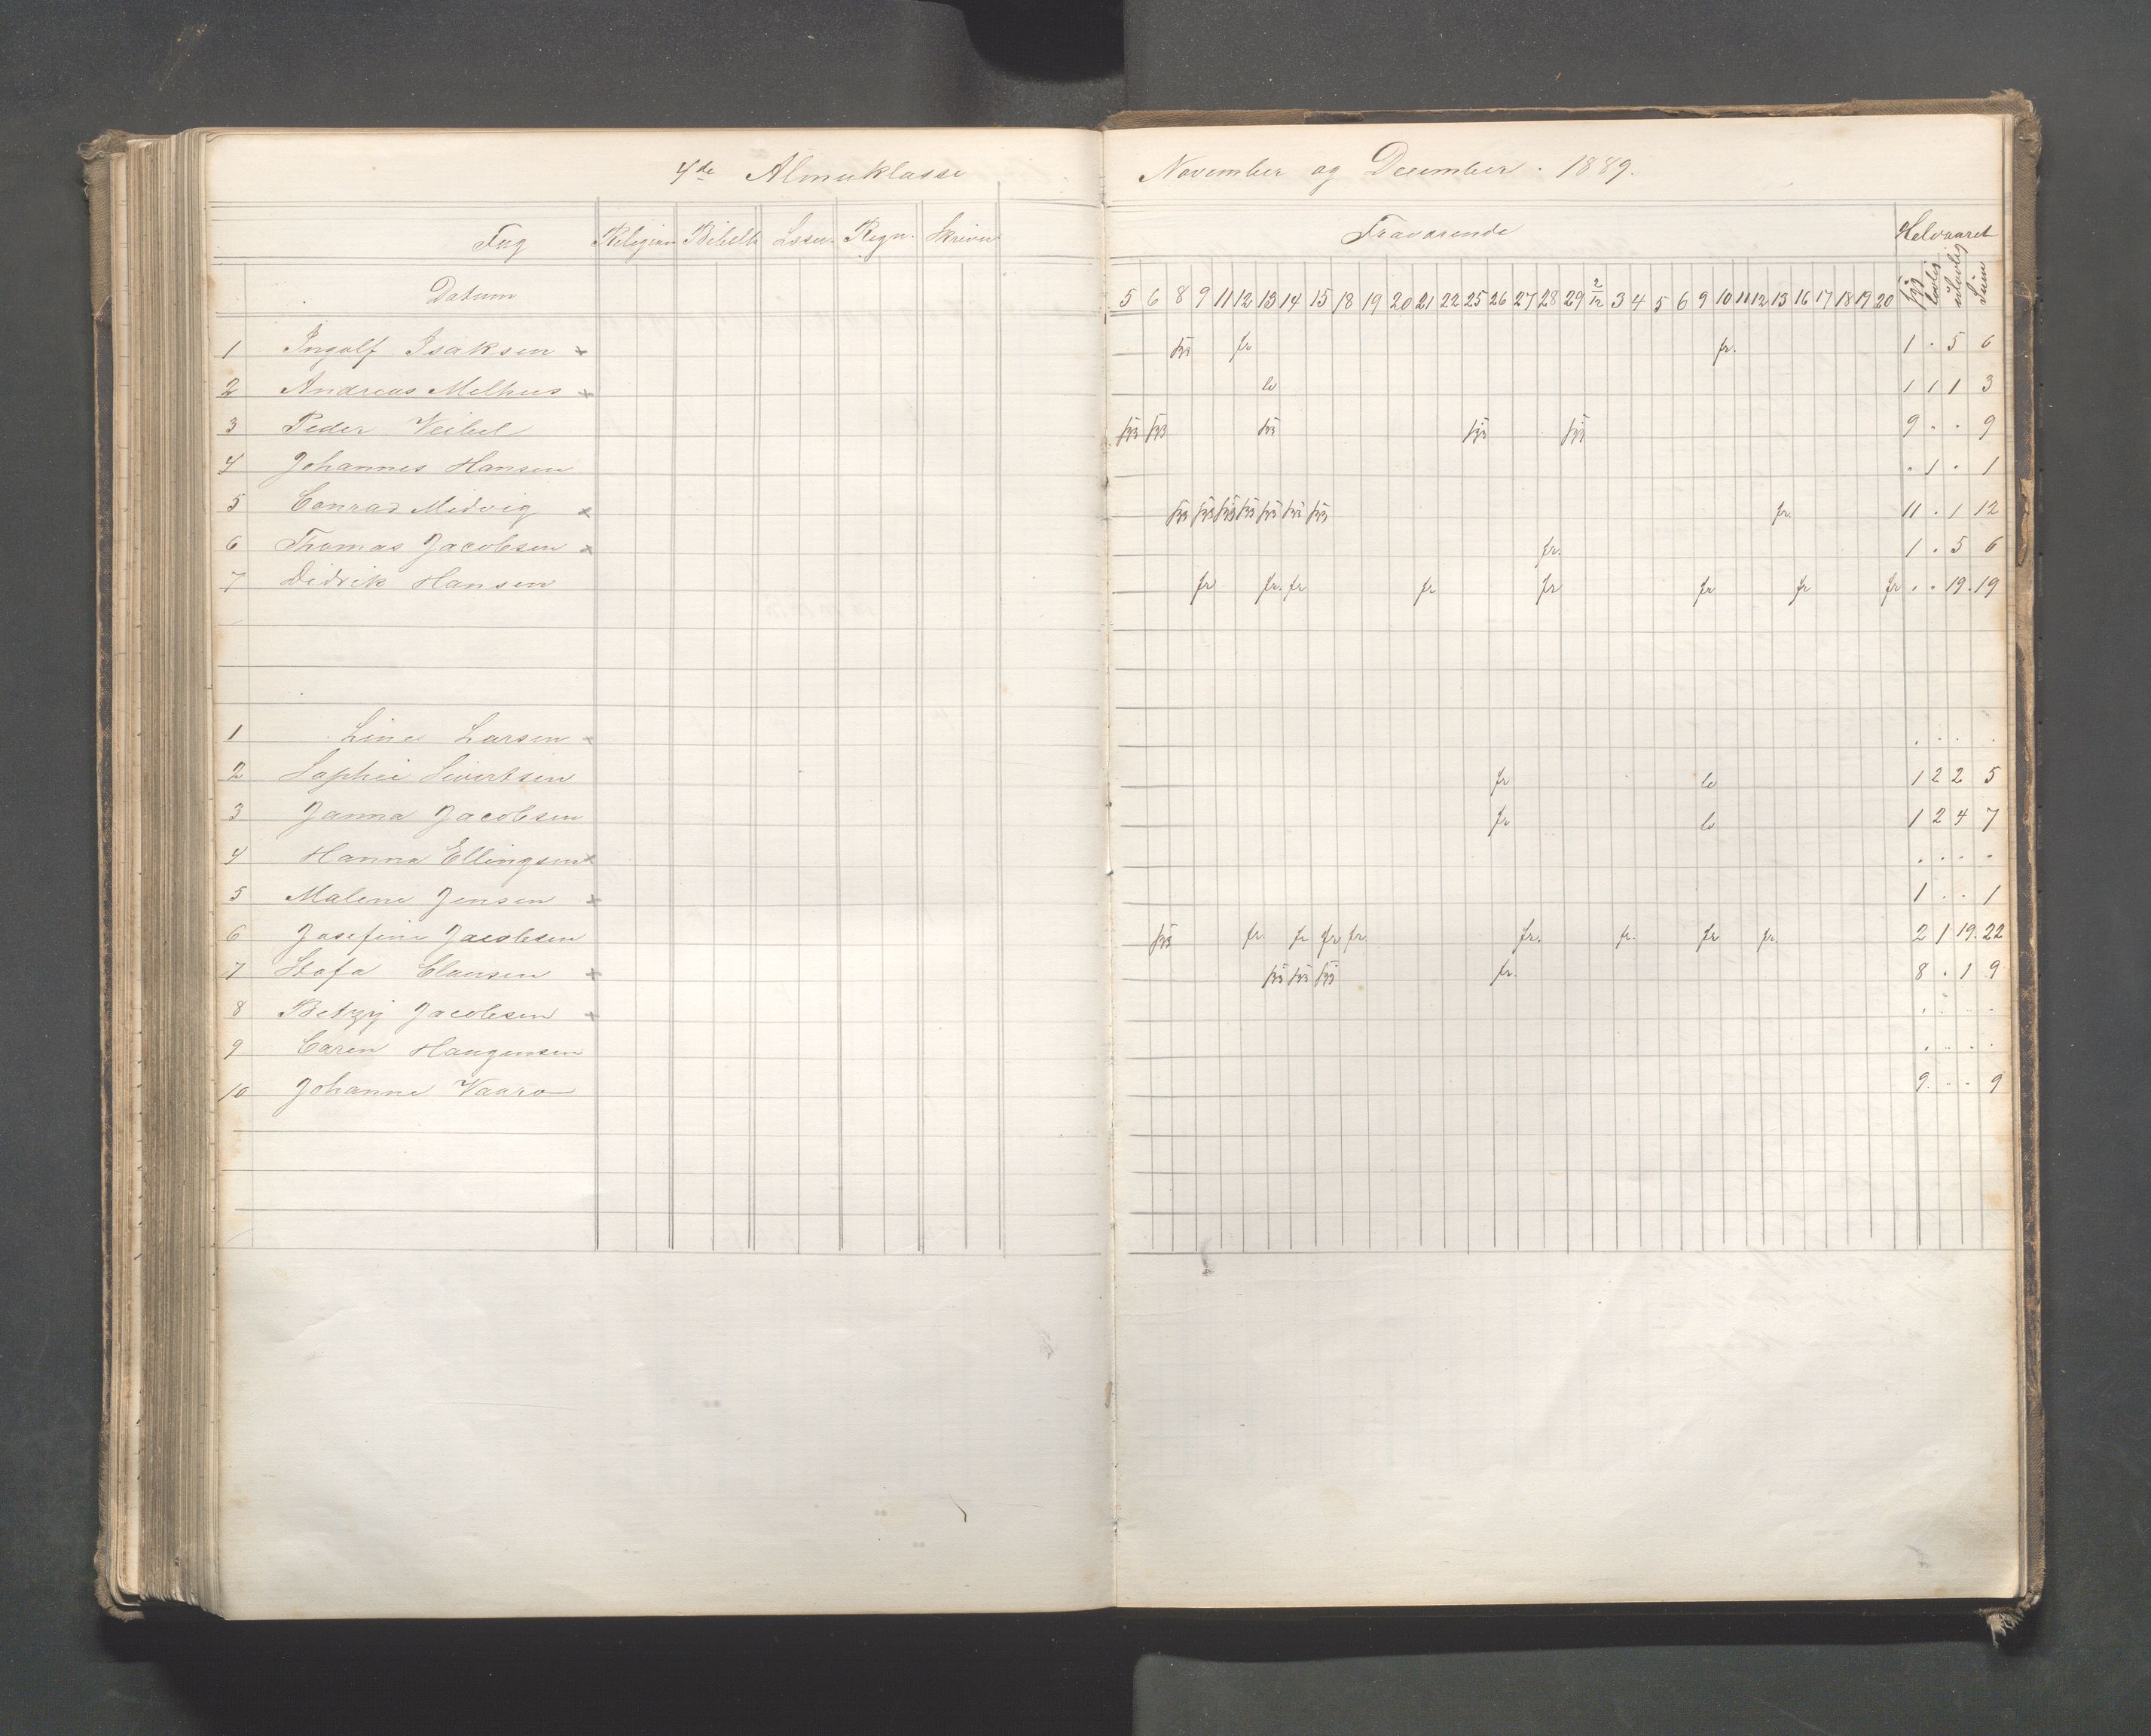 4de Almueklasse
November og December. 1889.
Fag Religion Bibelh Læsn. Regn. Skrivn
Fraværende Halvaaret
Datum
5 6 8 9 11 12 13 14 15 18 19 20 21 22 25 26 27 28 29 2/12 3 4 5 6 9 10 11 12 13 16 17 18 19 20 syg lovlig ulovlig Sum
1 Ingolf Isaksen x syg fr fr. 1 . 5 6
2 Andreas Melhus x lo 1 1 1 3
3 Peder Veibel syg syg syg syg syg 9 . . 9
4 Johannes Hansen . 1 . 1
5 Conrad Midvig x syg syg syg syg syg syg syg fr. 11 . 1 12
6 Thomas Jacobsen x fr. 1 . 5 6
7 Didrik Hansen fr fr. fr fr fr fr fr fr . . 19. 19
1 Line Larsen x . . . .
2 Sophie Sivertsen fr lo 1 2 2 5
3 Janna Jacobsen fr lo 1 2 4 7
4 Hanna Ellingsen x . . . .
5 Malene Jensen x 1 . . 1
6 Josefine Jacobsen syg fr. fr fr fr. fr. fr. fr fr. 2 1 19. 22
7 Stofa Clausen x syg syg syg fr. 8 . 1 9
8 Betzy Jacobsen x . . . .
9 Caren Haagensen . . . .
10 Johanne Vaaro 9 . . 9